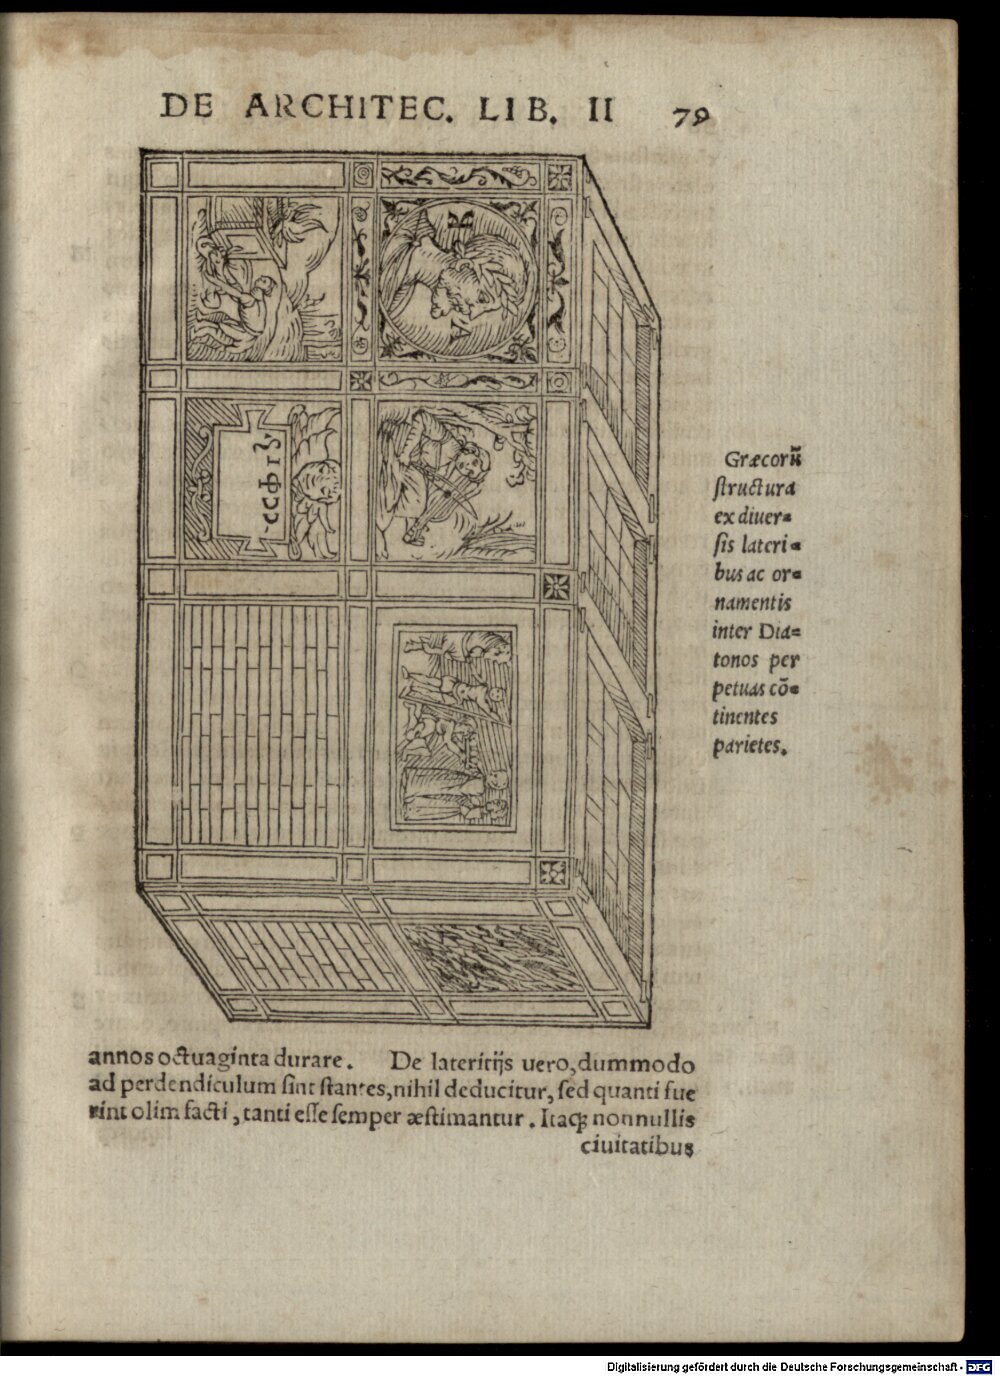 DE ARCHITEC. LIB. II 79
Græcorũ
structura
ex diuer=
sis lateri=
bus ac or=
namentis
inter Dia=
tonos per
petuas cõ=
tinentes
parietes.
annos octuaginta durare. De lateritijs uero, dummodo
ad perdendiculum sint stantes, nihil deducitur, sed quanti fue
rint olim facti, tanti esse semper æstimantur. Itaq; nonnullis
ciuitatibus
Digitalisierung gefördert durch die Deutsche Forschungsgemeinschaft - DFG